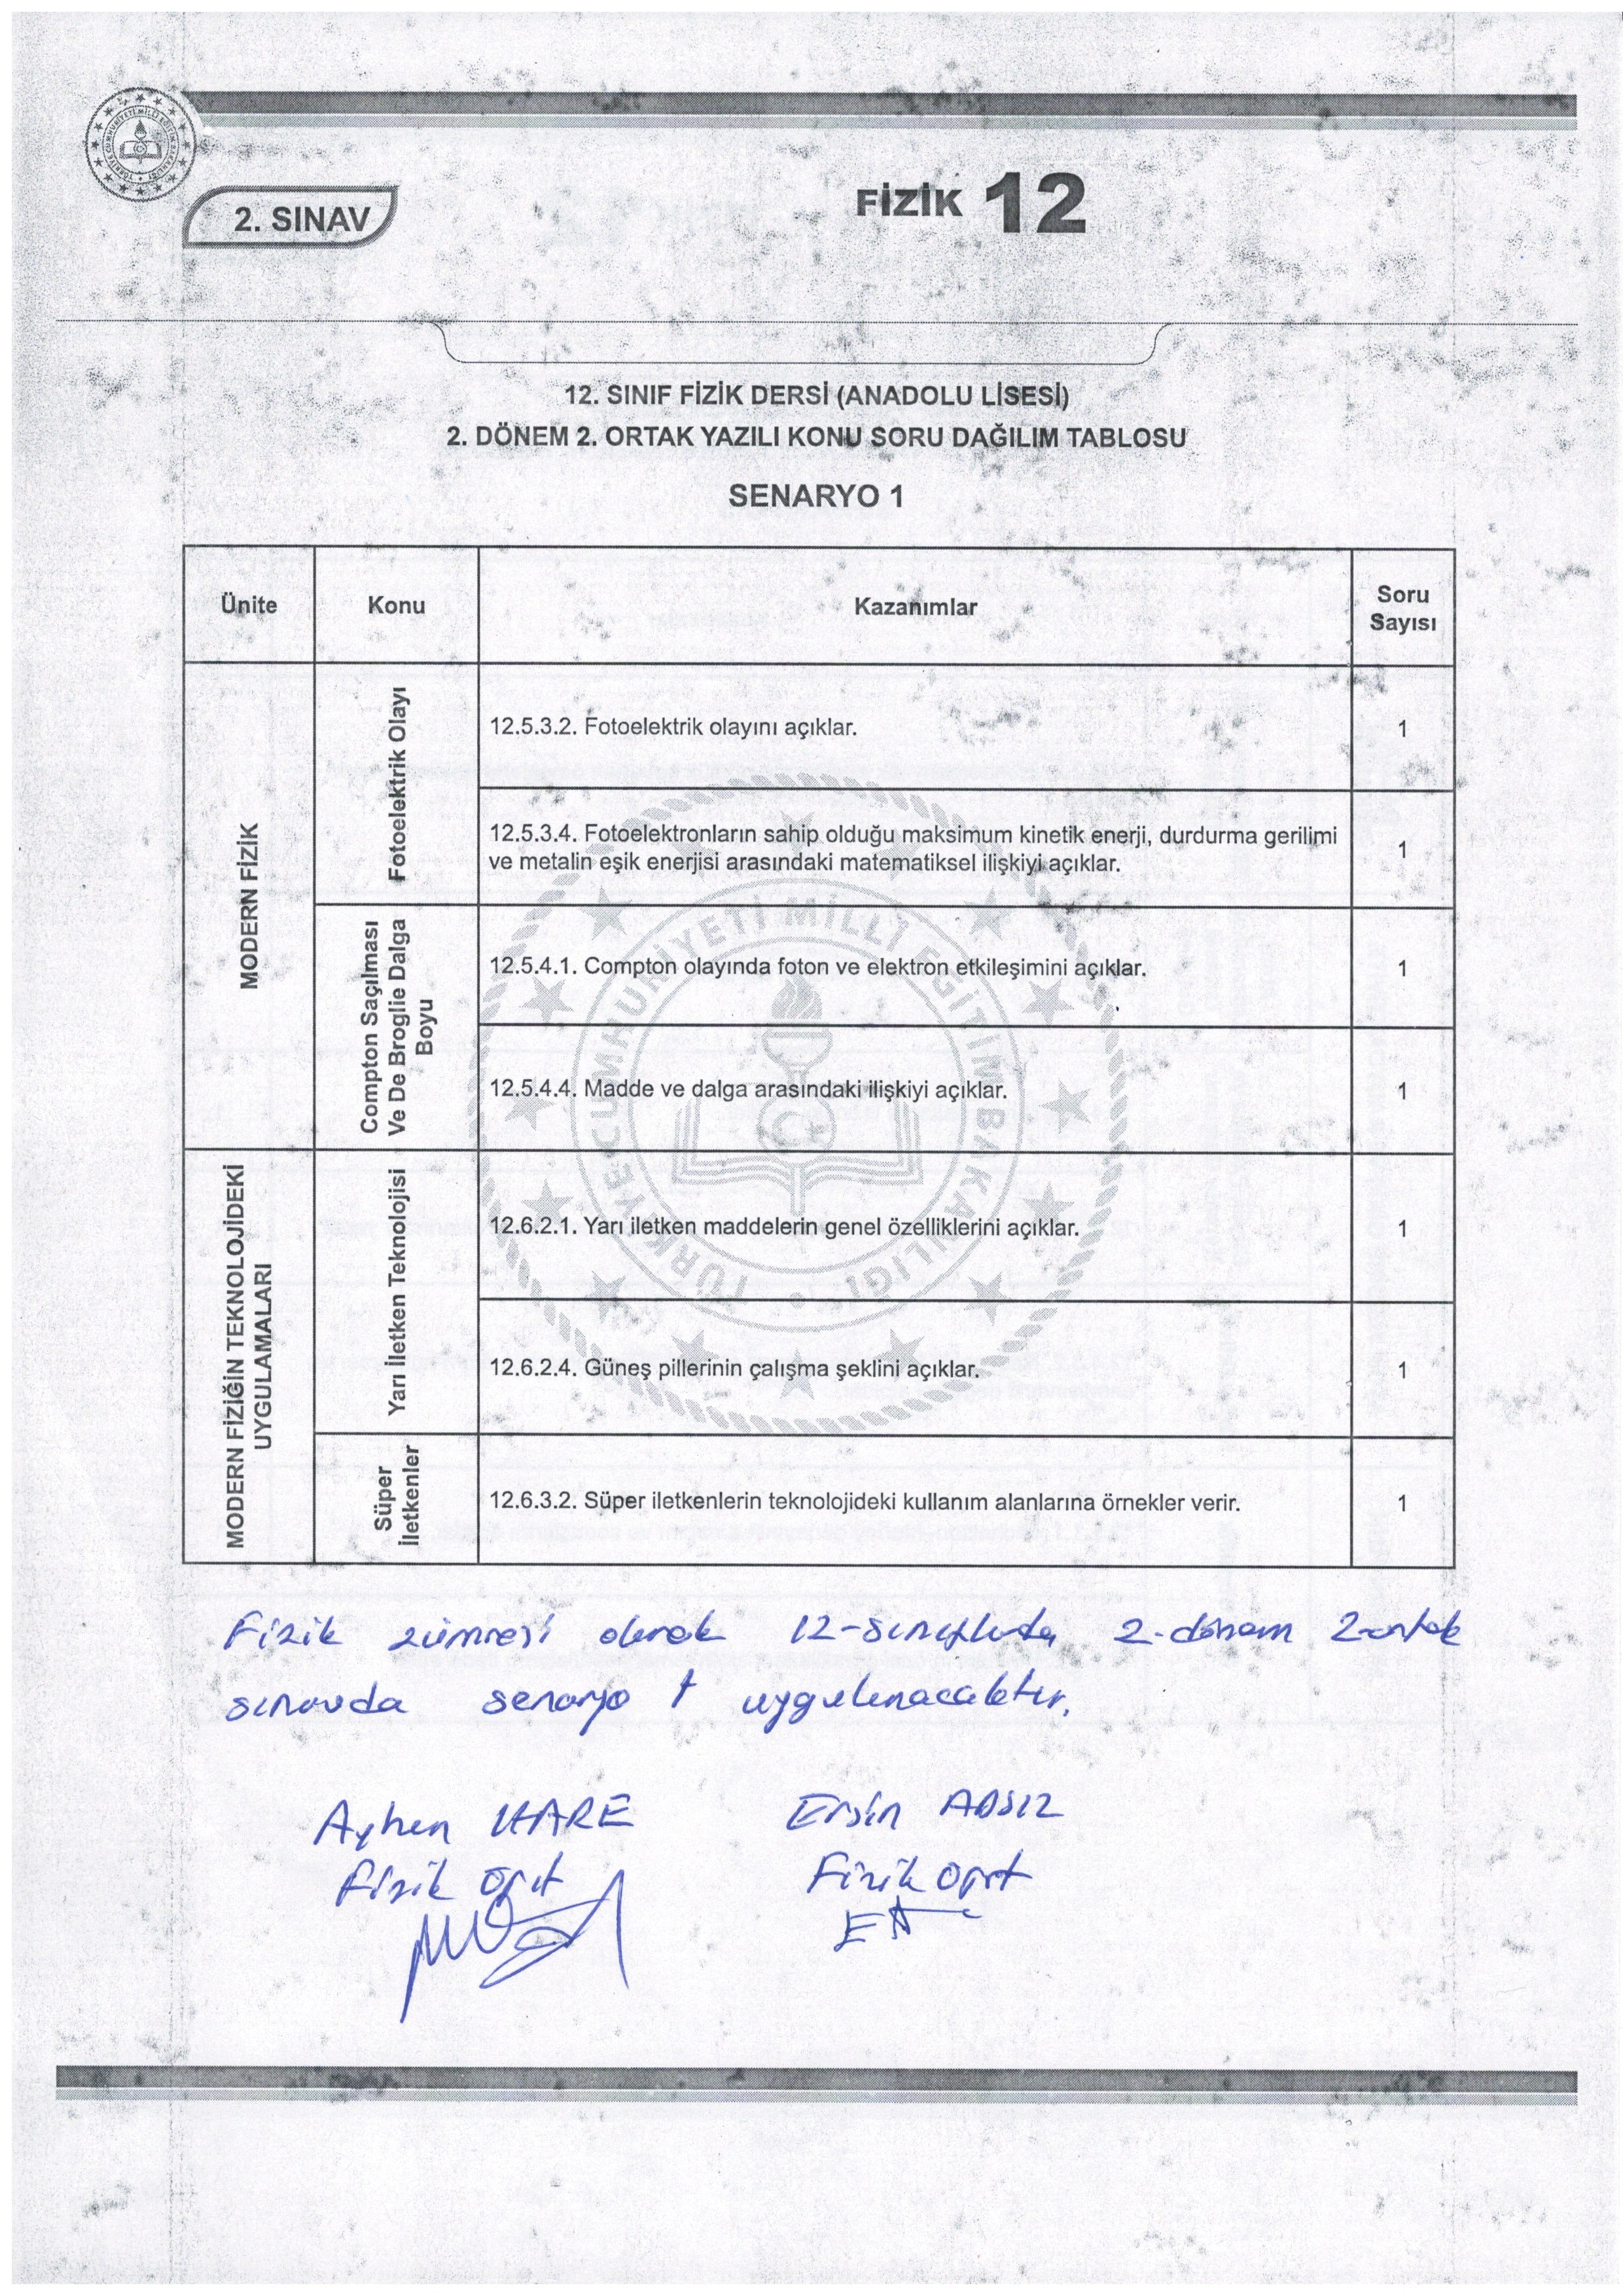 2. SINAV
FİZİK 12
12. SINIF FİZİK DERSİ (ANADOLU LİSESİ)
2. DÖNEM 2. ORTAK YAZILI KONU SORU DAĞILIM TABLOSU
SENARYO 1
Ünite
Konu
Kazanımlar
Soru
Sayısı
MODERN FİZİK
Fotoelektrik Olayı
12.5.3.2. Fotoelektrik olayını açıklar.
1
12.5.3.4. Fotoelektronların sahip olduğu maksimum kinetik enerji, durdurma gerilimi
ve metalin eşik enerjisi arasındaki matematiksel ilişkiyi açıklar.
1
Compton Saçılması
Ve De Broglie Dalga
Boyu
12.5.4.1. Compton olayında foton ve elektron etkileşimini açıklar.
1
12.5.4.4. Madde ve dalga arasındaki ilişkiyi açıklar.
1
MODERN FİZİĞİN TEKNOLOJİDEKİ
UYGULAMALARI
Yarı İletken Teknolojisi
12.6.2.1. Yarı iletken maddelerin genel özelliklerini açıklar.
1
12.6.2.4. Güneş pillerinin çalışma şeklini açıklar.
1
Süper
İletkenler
12.6.3.2. Süper iletkenlerin teknolojideki kullanım alanlarına örnekler verir.
1
TÜRKİYE CUMHURİYETİ MİLLİ EĞİTİM BAKANLIĞI
Fizik zümresi olarak 12-sınıflarda 2.dönem 2.ortak
sınavda senaryo 1 uygulanacaktır.
Ayhan KARE
Fizik Öğrt
Ersin ADSIZ
Fizik Öğrt